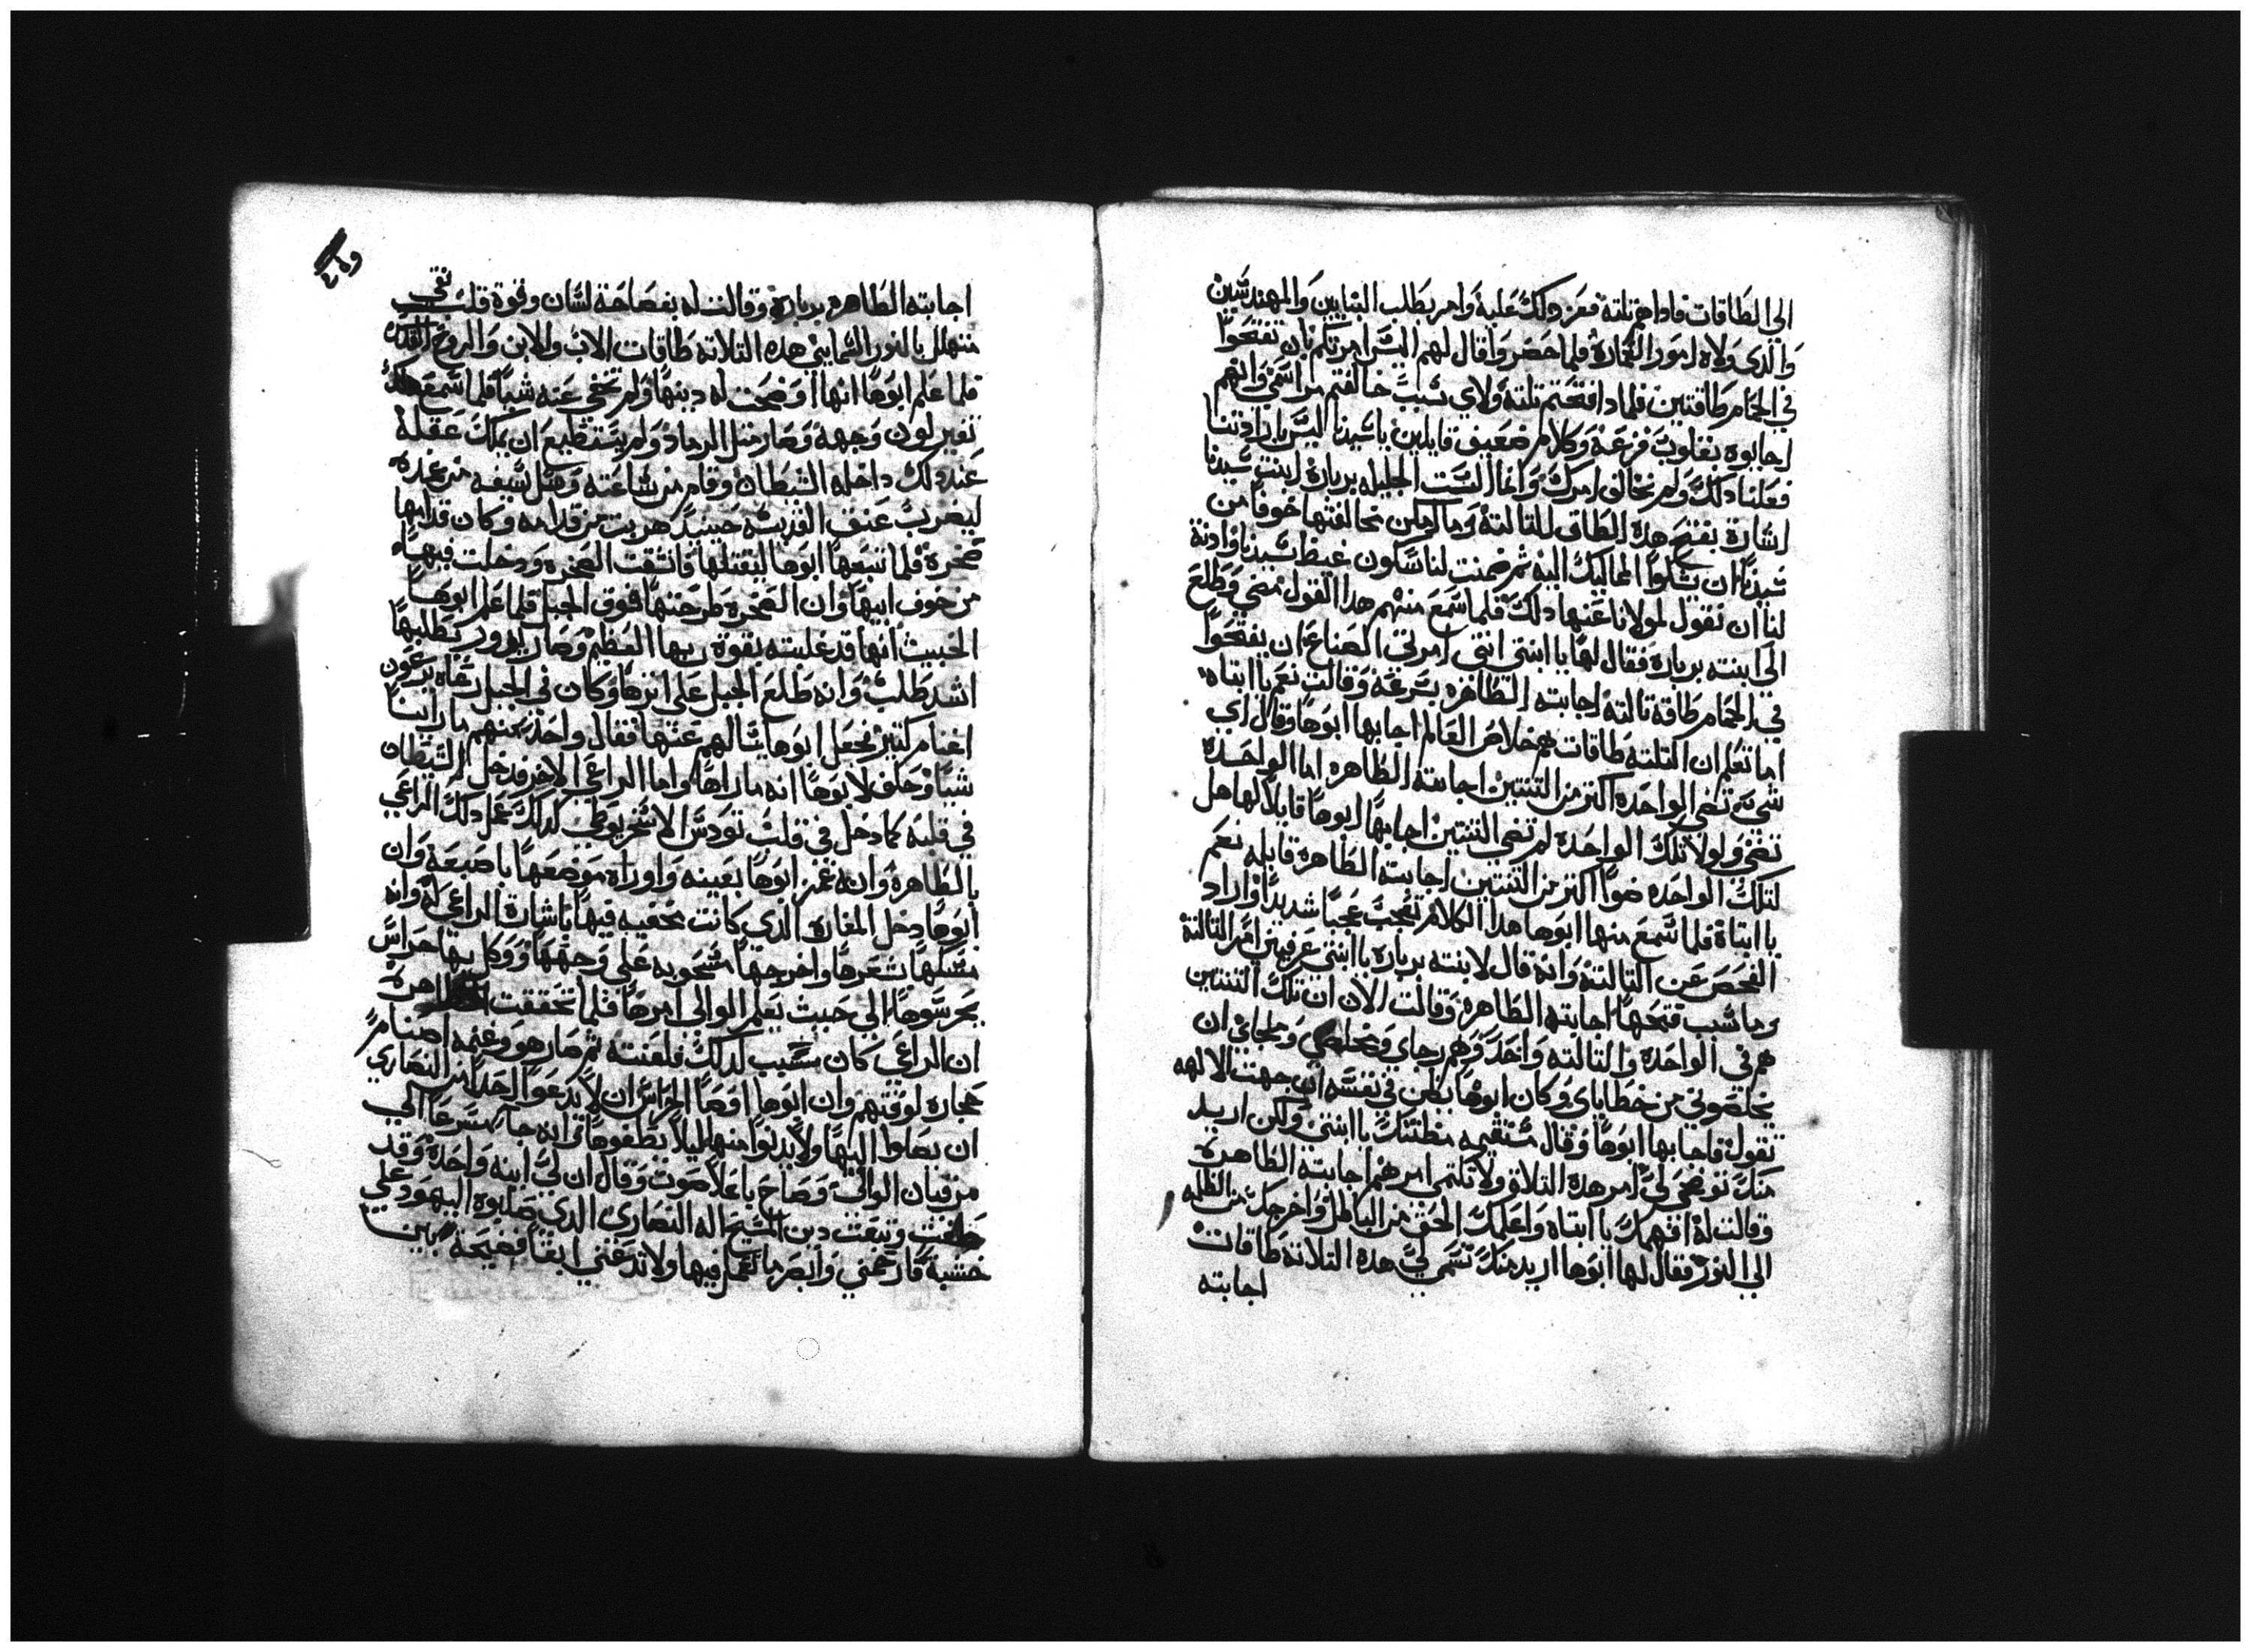 الي الطاقات فاداهم تلتة فعز دلك عليه وامر بطلب البنايين والمهندسين
والدي ولاه امور العمارة فلما حضروا قال لهم اليس امرتكم بان تفتحوا
في الحمام طاقتين فلمادا فتحتم تلتة ولاي سبب خالفتم مراسمي وانهم
اجابوه بقلوب فزعة وكلام ضعيف قايلين ياسيدنا اليس بارادتنا
فعلنا دلك ولم نخالف امرك وانما الست الجليله بربارة ابنت سيدنا
اشارة بفتح هده الطاق التالتة وما امكن مخالفتها خوفا من
سيدنا ان يشكوا المماليك اليه ثم ضمنت لنا سكون غيظ سيدنا وادنة
لنا ان نقول لمولانا عنها دلك فلما سمع منهم هدا القول مضي وطلع
الي ابنته بربارة فقال لها يا ابنتي انتي امرتي الصناع ان يفتحوا
في الحمام طاقة تالتة اجابته الطاهره بسرعة وقالت نعم يا ابتاه
اما تعلم ان التلتة طاقات هم خلاص العالم اجابها ابوها وقال اي
شي تضي الواحدة اكتر من التنتين اجابته الطاهره اما الواحدة
تضي ولولا تلك الواحدة لم تضي التنتين اجابها ابوها قايلا لها هل
لتلك الواحده ضوا اكتر من التنتين اجابته الطاهرة قايله نعم
يا ابتاة فلما سمع منها ابوها هدا الكلام تعجب عجبا شديدا واراد
الفحص عن التالتة وانه قال لابنته بربارة يا ابنتي عرفيني امر التالتة
وما سبب فتحها اجابته الطاهرة وقالت الان ان تلك التنتين
هم في الواحدة والتالتة واحد وهم رجاي ومخلصي وملجاي ان
يخلصوني من خطاياي وكان ابوها يظن في نفسه ان جهت الالهه
تقول فاجابها ابوها وقال مستقيمه منطقتك يا ابنتي ولكن اريد
منك توضحي لي امر هدة التلاتة ولا تكتمي امرهم اجابته الطاهرة
وقالت له افهمك يا ابتاه واعلمك الحق من الباطل واخرجك من الظلمه
الي النور فقال لها ابوها اريد منك تسمي لي هدة التلاتة طاقات
اجابته
اجابته الطاهره بربارة وقالت له بفصاحة لسان وقوة قلب نقي
متهلل بالنور السماييي هده التلاته طاقات الاب والابن والروح القدس
فلما علم ابوها انها اوضحت له دينها ولم تخفي عنه شيا فلما سمع دلك
تغير لون وجهه وصار متل الرماد ولم يستطيع ان يملك عقله
عند دلك داخله الشيطان وقام من ساعته وسل سيفه من غمده
ليضرب عنق القديسه حينيد هربت من قدامه وكان قدامها
صخرة فلما تبعها ابوها ليقتلها فانشقت الصخره ودخلت فيها
من خوف ابيها وان الصخرة طرحتها فوق الجبل فلما علم ابوها
الخبيث انها قد غلبته بقوة ربها العظيم وصار يدور يطلبها
اشد طلب وانه طلع الجبل علي اترها وكان في الجبل رعاه يرعون
اغنام كتير فجعل ابوها يسالهم عنها فقال واحد منهم ما راينا
شيا وحلف لابوها انه ما راها واما الراعي الاخر فدخل الشيطان
في قلبه كما دخل في قلب يودس الاسخريوطي كدلك عمل دلك الراعي
بالطاهرة وانه غمز ابوها بعينه واوراه موضعها باصبعة وان
ابوها دخل المغارة الدي كانت مخفيه فيها باشارة الراعي له وانه
مسكها شعرها واخرجها مسحوبه علي وجهها ووكل بها حراس
يحرسوها الي حيث يعلم الوالي امرها فلما تحققت الطاهرة
ان الراعي كان سبب لدلك فلعنته ثم صار هو وغنمه اصنام
حجارة لوقتهم وان ابوها اوصا الحراس ان لا يدعوا احدا من النصاري
ان يصلوا اليها ولا يدنوا منها ليلا يطغوها تم انه جا مسرعا الي
مرقيان الوالي وصاح باعلا صوت وقال ان لي ابنه واحدة وقد
طغت وتبعت دين المسيح اله النصاري الدي صلبوه اليهود علي
خشبة فارحمني وابصر ما تعمل فيها ولا تدعني ابقا فضيحة بين